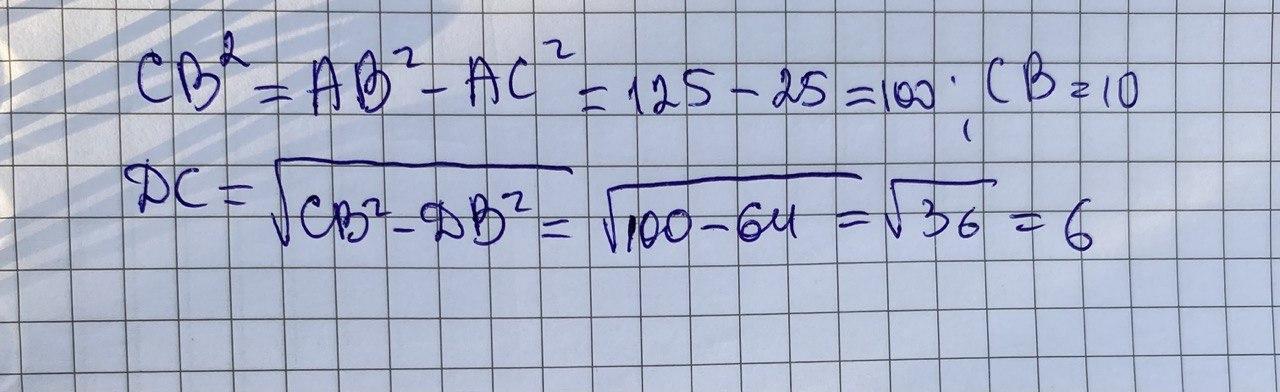 CB² = AB² - AC² = 125 - 25 = 100; CB = 10
DC = √(CB² - DB²) = √(100 - 64) = √36 = 6